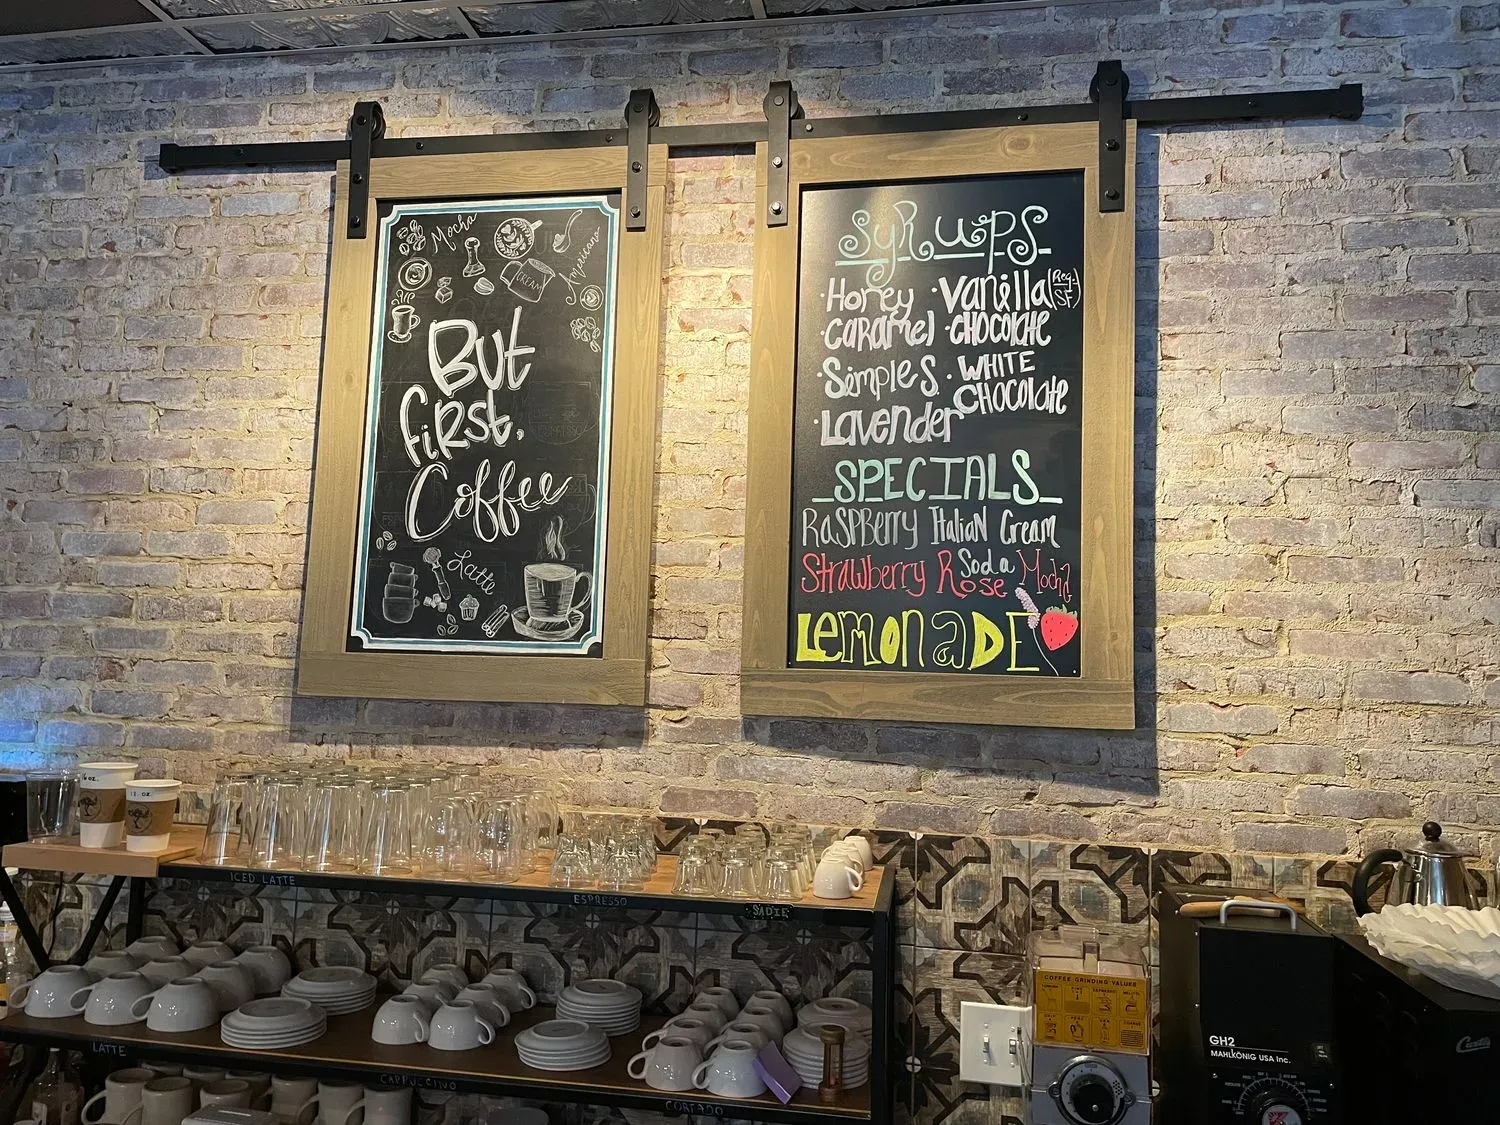 Mocha
Americano
CREAM
But
first,
Coffee
Latte
SYRUPS
·Honey ·Vanilla (Reg. SF)
·Caramel ·Chocolate
·Simple S. ·WHITE
Chocolate
·Lavender
SPECIALS
Raspberry Italian Cream
Soda
Strawberry Rose Mocha
LEMONADE
16 oz.
12 oz.
ICED LATTE
ESPRESSO
SADIE
LATTE
CAPPUCCINO
CORTADO
COFFEE GRINDING VALUES
GH2
MAHLKÖNIG USA Inc.
Curtis